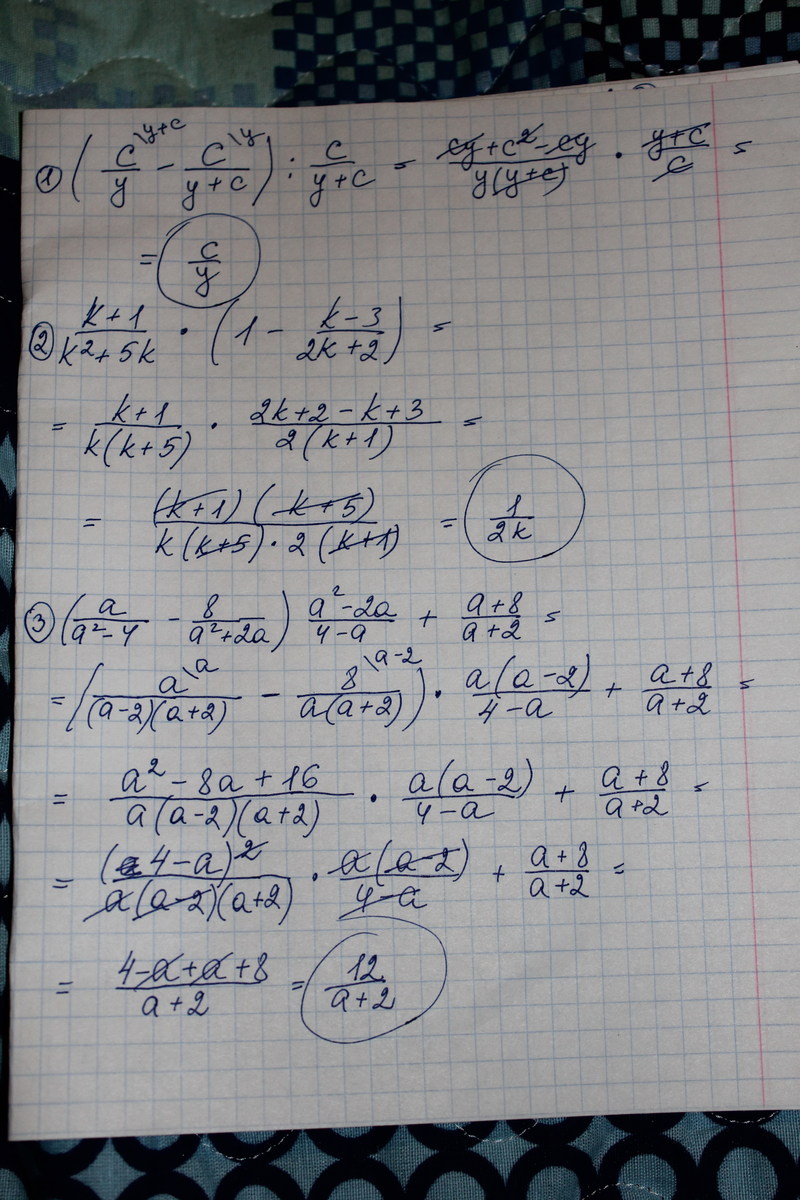 ① (c/y \y+c − c/(y+c) \y) : c/(y+c) = (cy+c²−cy)/(y(y+c)) · (y+c)/c =
= c/y
② (k+1)/(k²+5k) · (1 − (k−3)/(2k+2)) =
= (k+1)/(k(k+5)) · (2k+2−k+3)/(2(k+1)) =
= ((k+1)(k+5))/(k(k+5)·2(k+1)) = 1/(2k)
③ (a/(a²−4) − 8/(a²+2a)) (a²−2a)/(4−a) + (a+8)/(a+2) =
= (a\a/((a−2)(a+2)) − 8\a−2/(a(a+2))) · a(a−2)/(4−a) + (a+8)/(a+2) =
= (a²−8a+16)/(a(a−2)(a+2)) · a(a−2)/(4−a) + (a+8)/(a+2) =
= (4−a)²/(a(a−2)(a+2)) · a(a−2)/(4−a) + (a+8)/(a+2) =
= (4−a+a+8)/(a+2) = 12/(a+2)